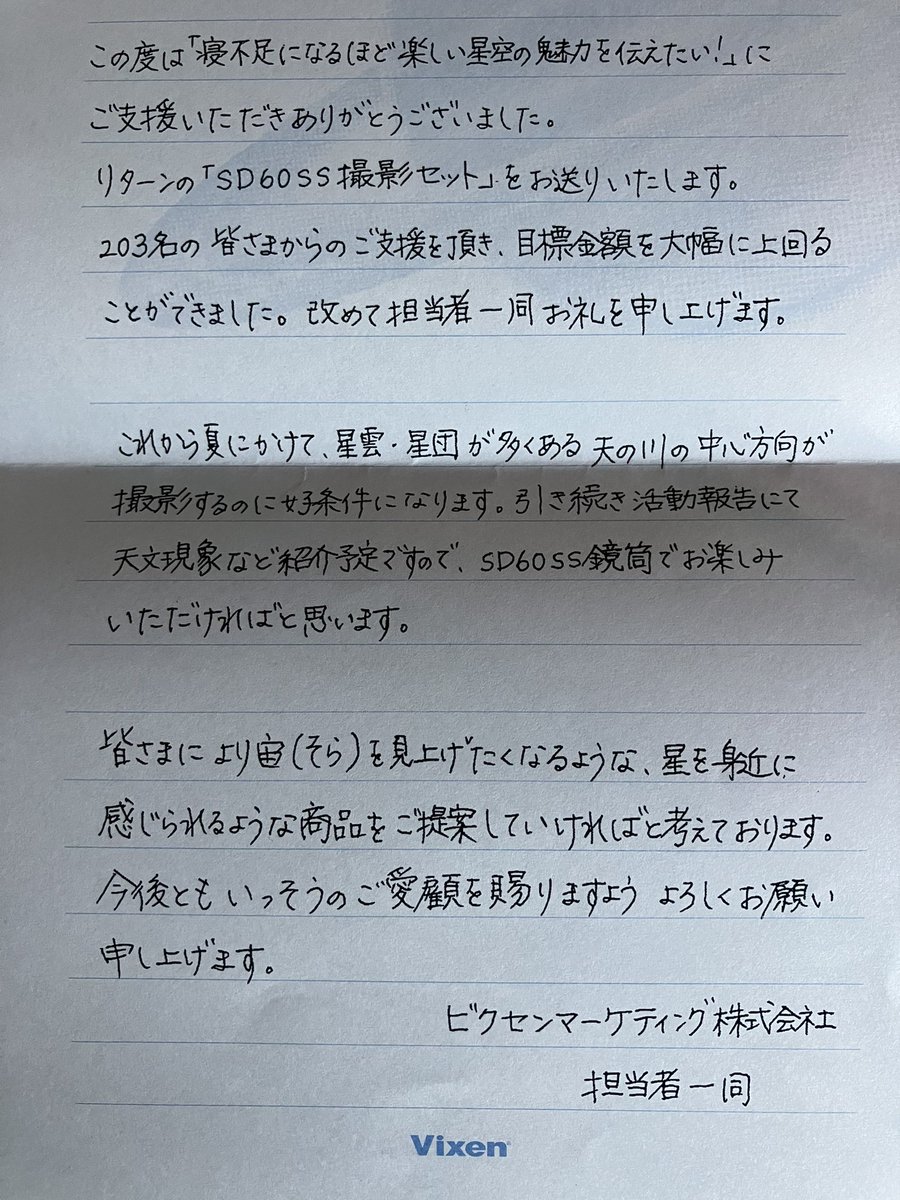 この度は「寝不足になるほど楽しい星空の魅力を伝えたい!」に
ご支援いただきありがとうございました。
リターンの「SD60SS撮影セット」をお送りいたします。
203名の皆さまからのご支援を頂き、目標金額を大幅に上回る
ことができました。改めて担当者一同お礼を申し上げます。
これから夏にかけて、星雲・星団が多くある天の川の中心方向が
撮影するのに好条件になります。引き続き活動報告にて
天文現象など紹介予定ですので、SD60SS鏡筒でお楽しみ
いただければと思います。
皆さまにより宙(そら)を見上げたくなるような、星を身近に
感じられるような商品をご提案していければと考えております。
今後ともいっそうのご愛顧を賜りますようよろしくお願い
申し上げます。
ビクセンマーケティング株式会社
担当者一同
Vixen